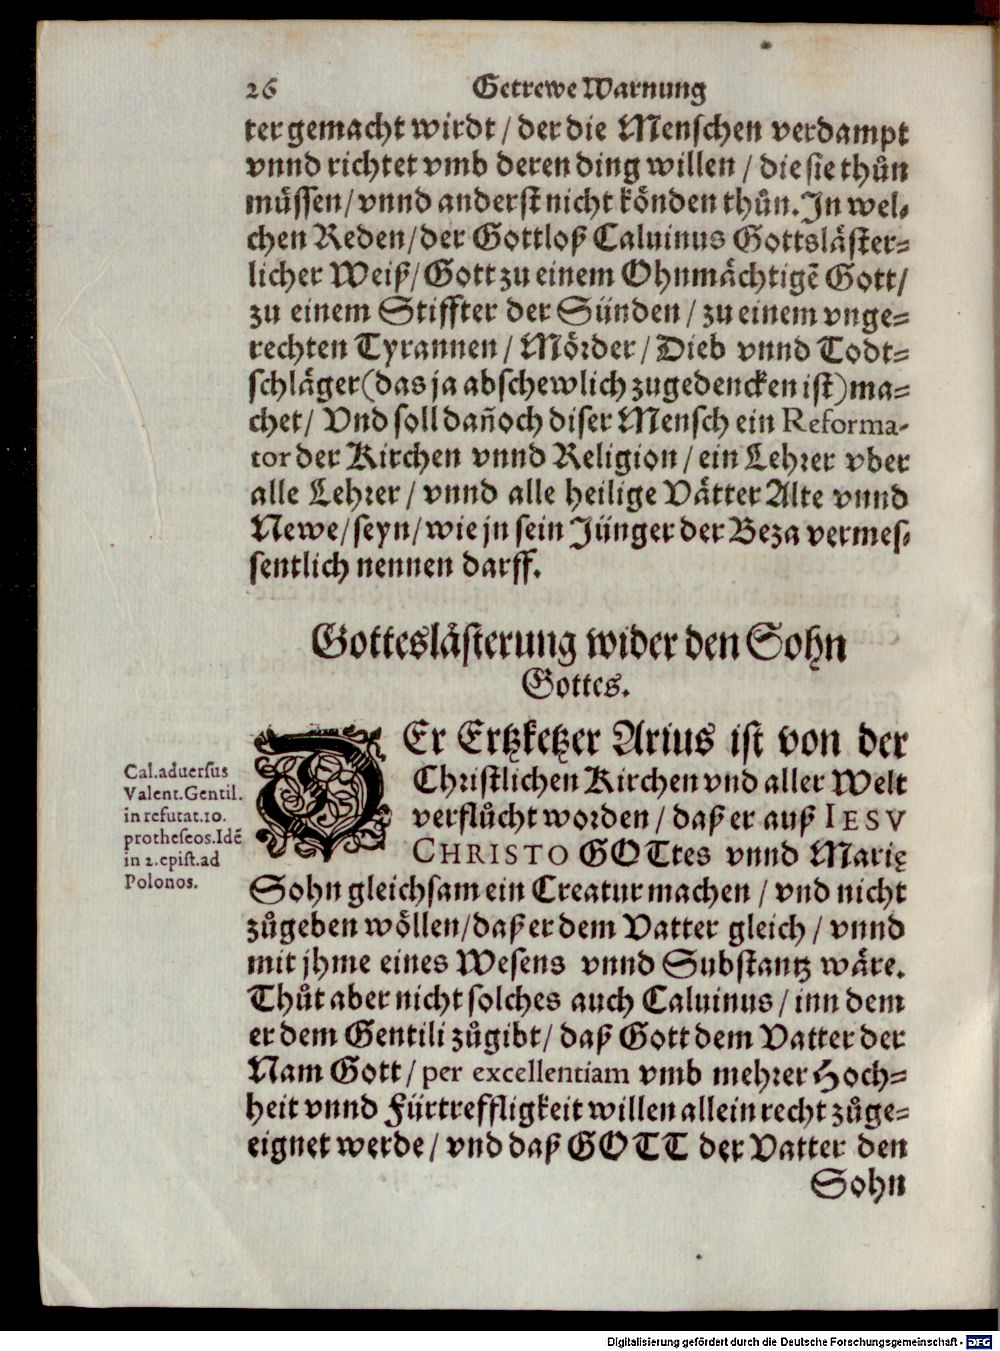 26 Getrewe Warnung
ter gemacht wirdt / der die Menschen verdampt
vnnd richtet vmb deren ding willen / die sie thůn
müssen / vnnd anderst nicht könden thůn. In wel-
chen Reden / der Gottloß Caluinus Gottsläster-
licher Weiß / Gott zu einem Ohnmächtigē Gott /
zu einem Stiffter der Sünden / zu einem vnge-
rechten Tyrannen / Mörder / Dieb vnnd Todt-
schläger (das ja abschewlich zugedencken ist) ma-
chet / Vnd soll dañoch diser Mensch ein Reforma-
tor der Kirchen vnnd Religion / ein Lehrer vber
alle Lehrer / vnnd alle heilige Vätter Alte vnnd
Newe / seyn / wie jn sein Jünger der Beza vermes-
sentlich nennen darff.
Gotteslästerung wider den Sohn
Gottes.
DEr Ertzketzer Arius ist von der
Christlichen Kirchen vnd aller Welt
verflůcht worden / daß er auß IESV
CHRISTO GOTtes vnnd Marię
Sohn gleichsam ein Creatur machen / vnd nicht
zůgeben wöllen / daß er dem Vatter gleich / vnnd
mit jhme eines Wesens vnnd Substantz wäre.
Thůt aber nicht solches auch Caluinus / inn dem
er dem Gentili zůgibt / daß Gott dem Vatter der
Nam Gott / per excellentiam vmb mehrer Hoch-
heit vnnd Fürtreffligkeit willen allein recht zůge-
eignet werde / vnd daß GOTT der Vatter den
Sohn
Cal. aduersus
Valent. Gentil.
in refutat. 10.
protheseos. Idē
in 2. epist. ad
Polonos.
Digitalisierung gefördert durch die Deutsche Forschungsgemeinschaft - DFG